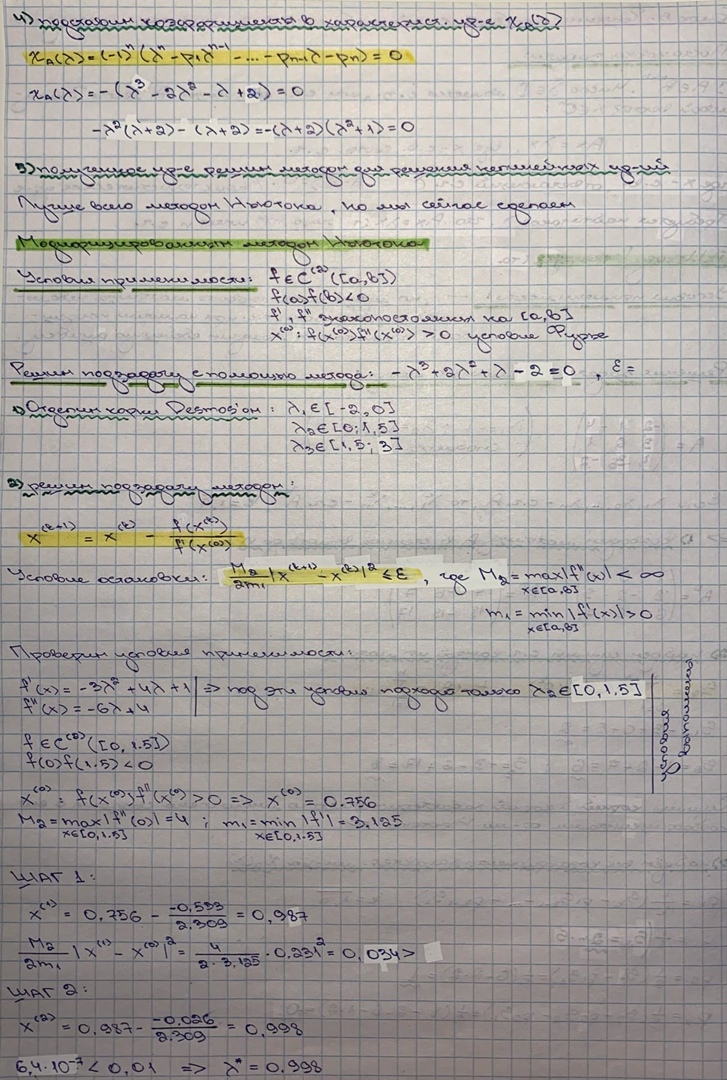 4) подставим коэффициенты в характерист. ур-е χ_A(λ)
χ_A(λ) = (-1)^n (λ^n - p₁λ^(n-1) - ... - p_(n-1)λ - p_n) = 0
χ_A(λ) = -(λ³ - 2λ² - λ + 2) = 0
-λ²(λ+2) - (λ+2) = -(λ+2)(λ²+1) = 0
5) полученное ур-е решим методом для решения нелинейных ур-ий
Лучше всего методом Ньютона, но мы сейчас сделаем
Модифицированным методом Ньютона
Условия применимости: f ∈ C^(2)([a,b])
f(a)f(b)<0
f', f'' знакопостоянны на [a,b]
x^(0): f(x^(0))f''(x^(0)) > 0 условие Фурье
Решим подзадачу с помощью метода: -λ³+2λ²+λ-2=0 , ε=
1) Отделим корни Desmos'ом: λ₁∈[-2,0]
λ₂∈[0;1,5]
λ₃∈[1,5; 3]
2) решим подзадачу методом:
x^(k+1) = x^(k) - f(x^(k))/f'(x^(0))
Условие остановки: M₂/2m₁ |x^(k+1) - x^(k)|² ≤ ε , где M₂ = max|f''(x)| < ∞
x∈[a,b]
m₁ = min|f'(x)|>0
x∈[a,b]
Проверим условия применимости:
f'(x) = -3λ²+4λ+1 | => под эти условия подходит только λ₂∈[0,1.5]
f''(x) = -6λ+4
f ∈ C^(2)([0,1.5])
f(0)f(1.5)<0
Условия выполнены
x^(0): f(x^(0))f''(x^(0)) > 0 => x^(0) = 0.756
M₂ = max|f''(0)| = 4 ; m₁ = min|f'| = 3.125
x∈[0,1.5] x∈[0,1.5]
ШАГ 1:
x^(1) = 0,756 - -0,533/2.309 = 0,987
M₂/2m₁ |x^(1) - x^(0)|² = 4/(2·3,125) · 0.231² = 0,034 >
ШАГ 2:
x^(2) = 0,987 - -0.026/2.309 = 0,998
6,4·10^-7 < 0,01 => λ* = 0.998